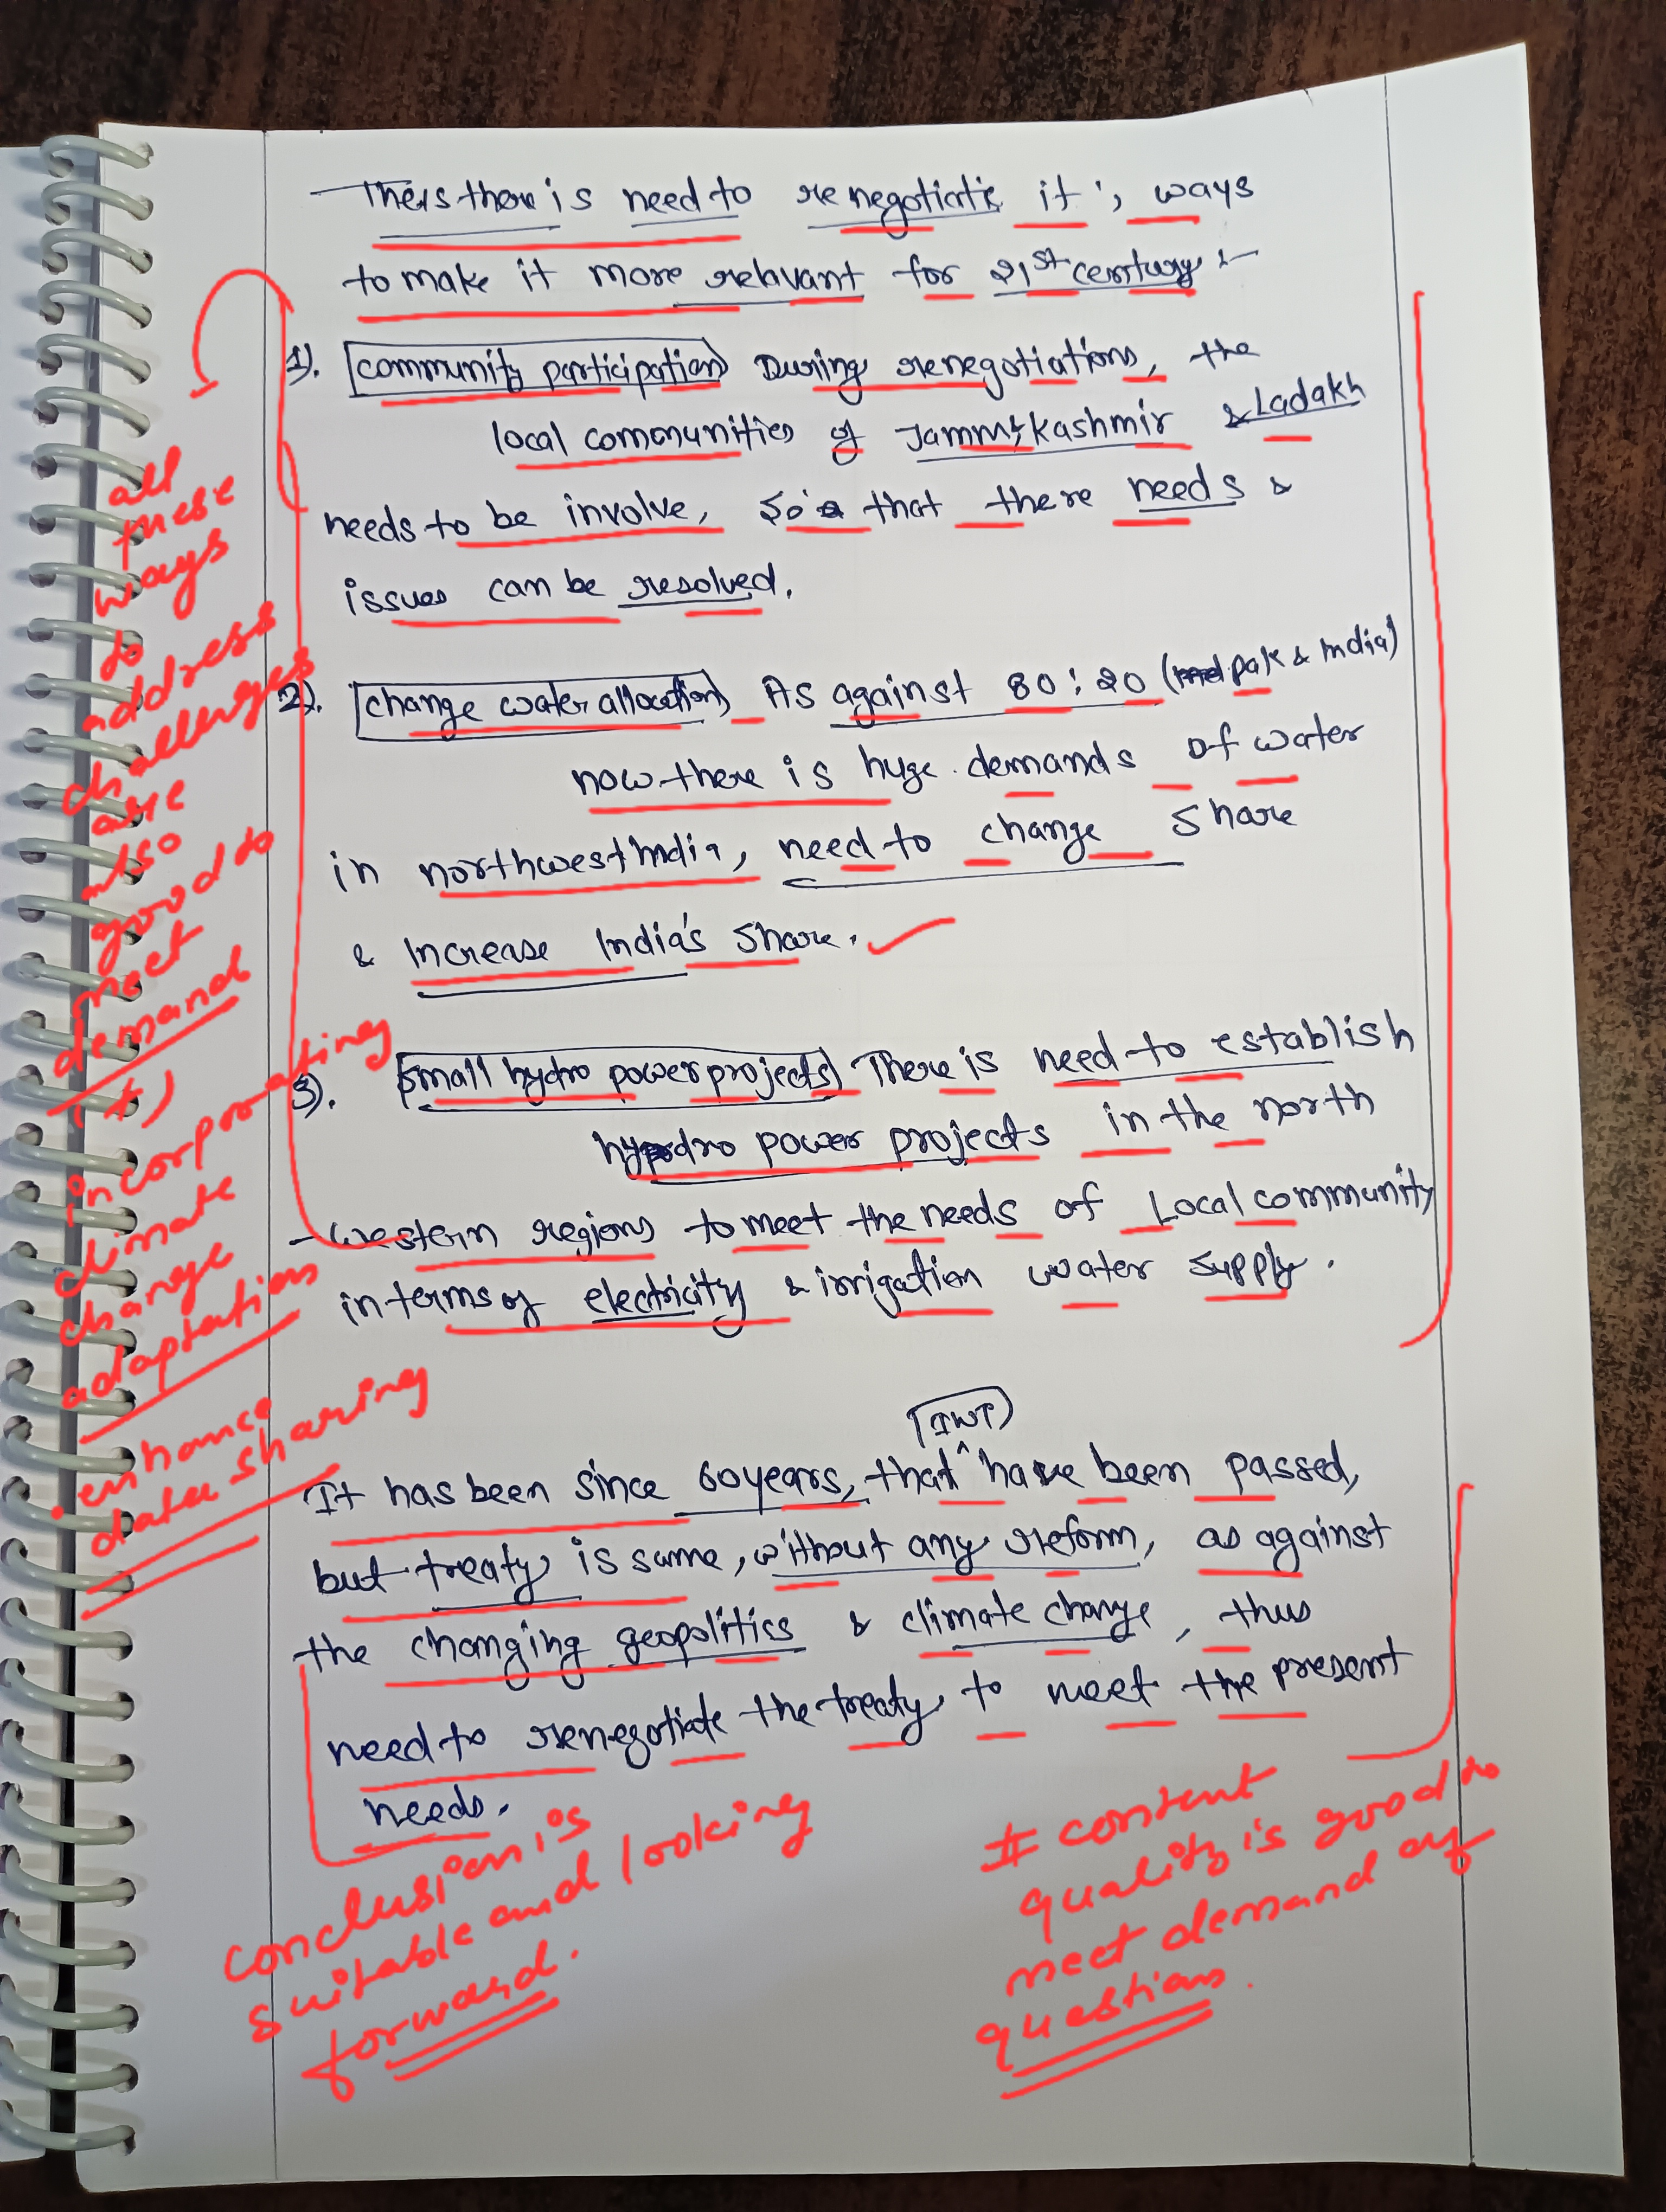 Thus there is need to renegotiate it, ways
to make it more relavant for 21st century :-
1). community participation During renegotiations, the
local communities of Jammu & Kashmir & Ladakh
needs to be involve, so that there needs &
issues can be resolved.
2). change water allocation As against 80:20 (Pak & India)
now there is huge demands of water
in northwest India, need to change share
& Increase India's share.
3). Small hydro power projects There is need to establish
hydro power projects in the north
-western regions to meet the needs of Local community
in terms of electricity & irrigation water supply.
(IWT)
It has been since 60 years, that ^ have been passed,
but treaty is same, without any reform, as against
the changing geopolitics & climate change, thus
need to renegotiate the treaty to meet the present
needs.
all
these
ways
to
address
challenges
are
also
good to
meet
demand
(+)
incorporating
climate
change
adaptation
. enhance
data sharing
conclusion is
suitable and looking
forward.
# content
quality is good to
meet demand of
question.